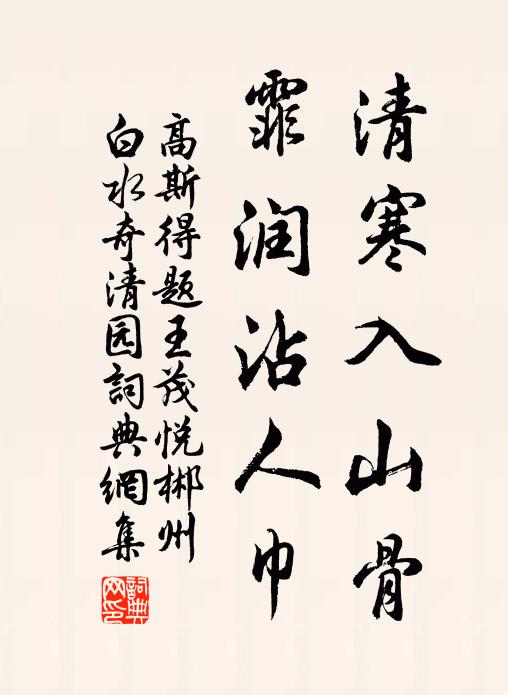 清寒入山骨
霏润沾人巾
高斯得题王茂悦郴州
白水奇清园詞典網集
詞典